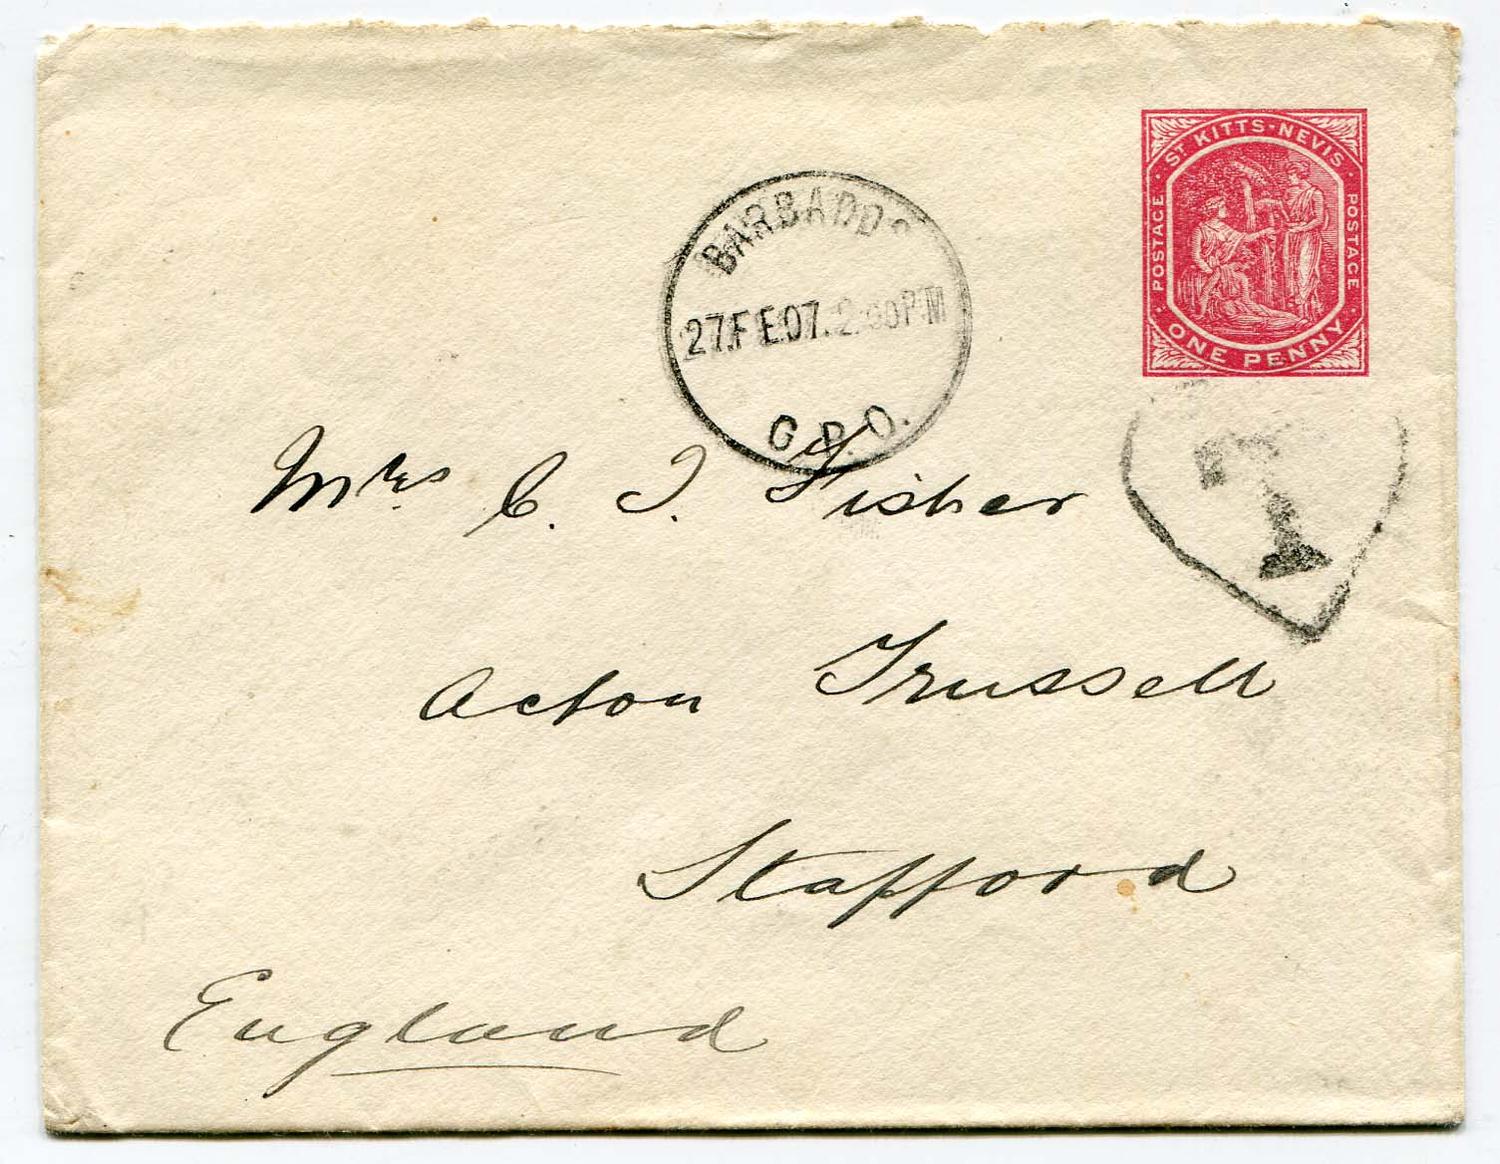 ST KITTS-NEVIS
POSTAGE
POSTAGE
ONE PENNY
BARBADOS
27.FE.07. 2.00PM
G.P.O.
T
Mrs C. J. Fisher
Acton Trussell
Stafford
England